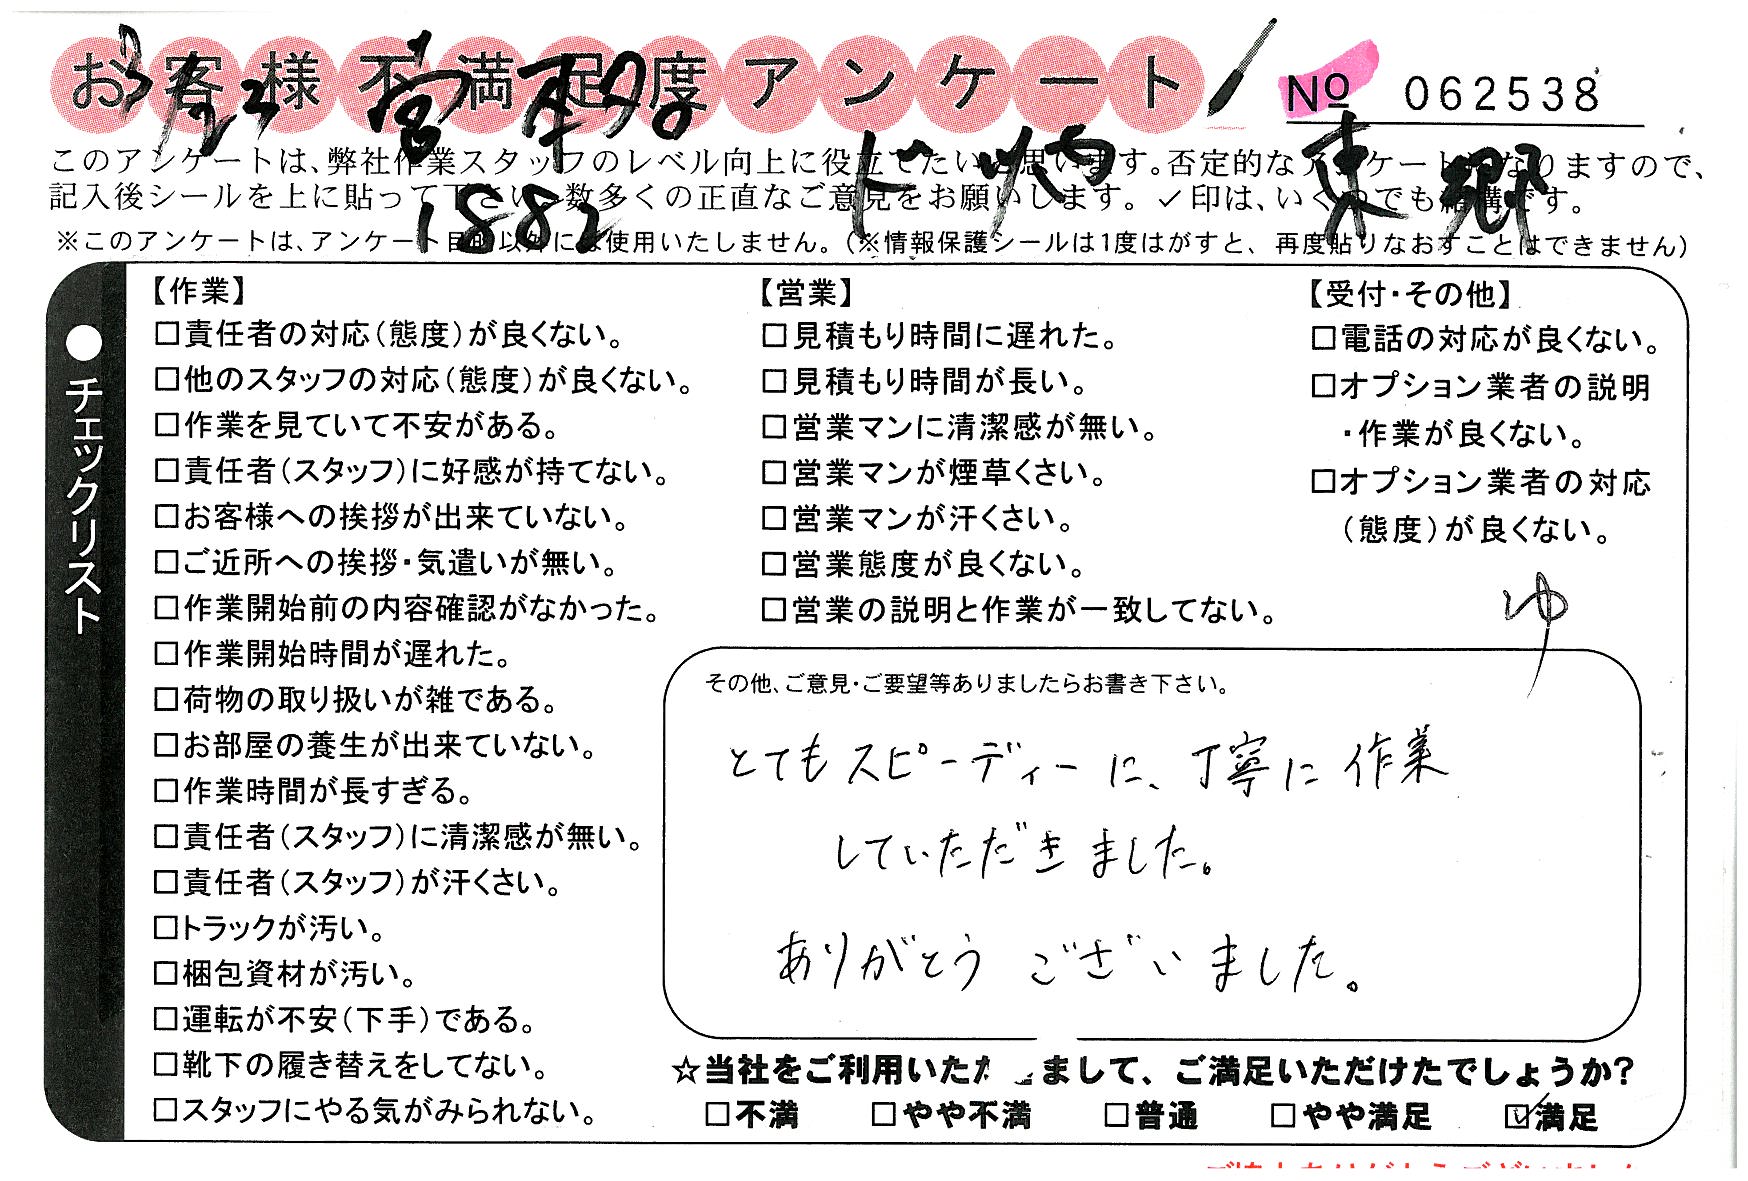 お客様不満足度アンケート
No 062538
このアンケートは、弊社作業スタッフのレベル向上に役立てたいと思います。否定的なアンケートになりますので、
記入後シールを上に貼って下さい。数多くの正直なご意見をお願いします。✓印は、いくつでも結構です。
1882
東郷
※このアンケートは、アンケート目的以外には使用いたしません。(※情報保護シールは1度はがすと、再度貼りなおすことはできません)
●チェックリスト
【作業】
□責任者の対応(態度)が良くない。
□他のスタッフの対応(態度)が良くない。
□作業を見ていて不安がある。
□責任者(スタッフ)に好感が持てない。
□お客様への挨拶が出来ていない。
□ご近所への挨拶・気遣いが無い。
□作業開始前の内容確認がなかった。
□作業開始時間が遅れた。
□荷物の取り扱いが雑である。
□お部屋の養生が出来ていない。
□作業時間が長すぎる。
□責任者(スタッフ)に清潔感が無い。
□責任者(スタッフ)が汗くさい。
□トラックが汚い。
□梱包資材が汚い。
□運転が不安(下手)である。
□靴下の履き替えをしてない。
□スタッフにやる気がみられない。
【営業】
□見積もり時間に遅れた。
□見積もり時間が長い。
□営業マンに清潔感が無い。
□営業マンが煙草くさい。
□営業マンが汗くさい。
□営業態度が良くない。
□営業の説明と作業が一致してない。
【受付・その他】
□電話の対応が良くない。
□オプション業者の説明
・作業が良くない。
□オプション業者の対応
(態度)が良くない。
ゆ
その他、ご意見・ご要望等ありましたらお書き下さい。
とてもスピーディーに、丁寧に作業
していただきました。
ありがとうございました。
☆当社をご利用いた まして、ご満足いただけたでしょうか?
□不満 □やや不満 □普通 □やや満足 ☑満足